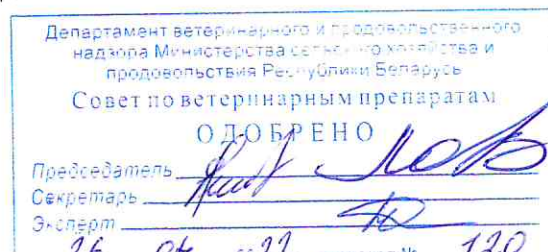 Департамент ветеринарного и продовольственного
надзора Министерства сельского хозяйства и
продовольствия Республики Беларусь
Совет по ветеринарным препаратам
ОДОБРЕНО
Председатель
Секретарь
Эксперт
26 22 № 120